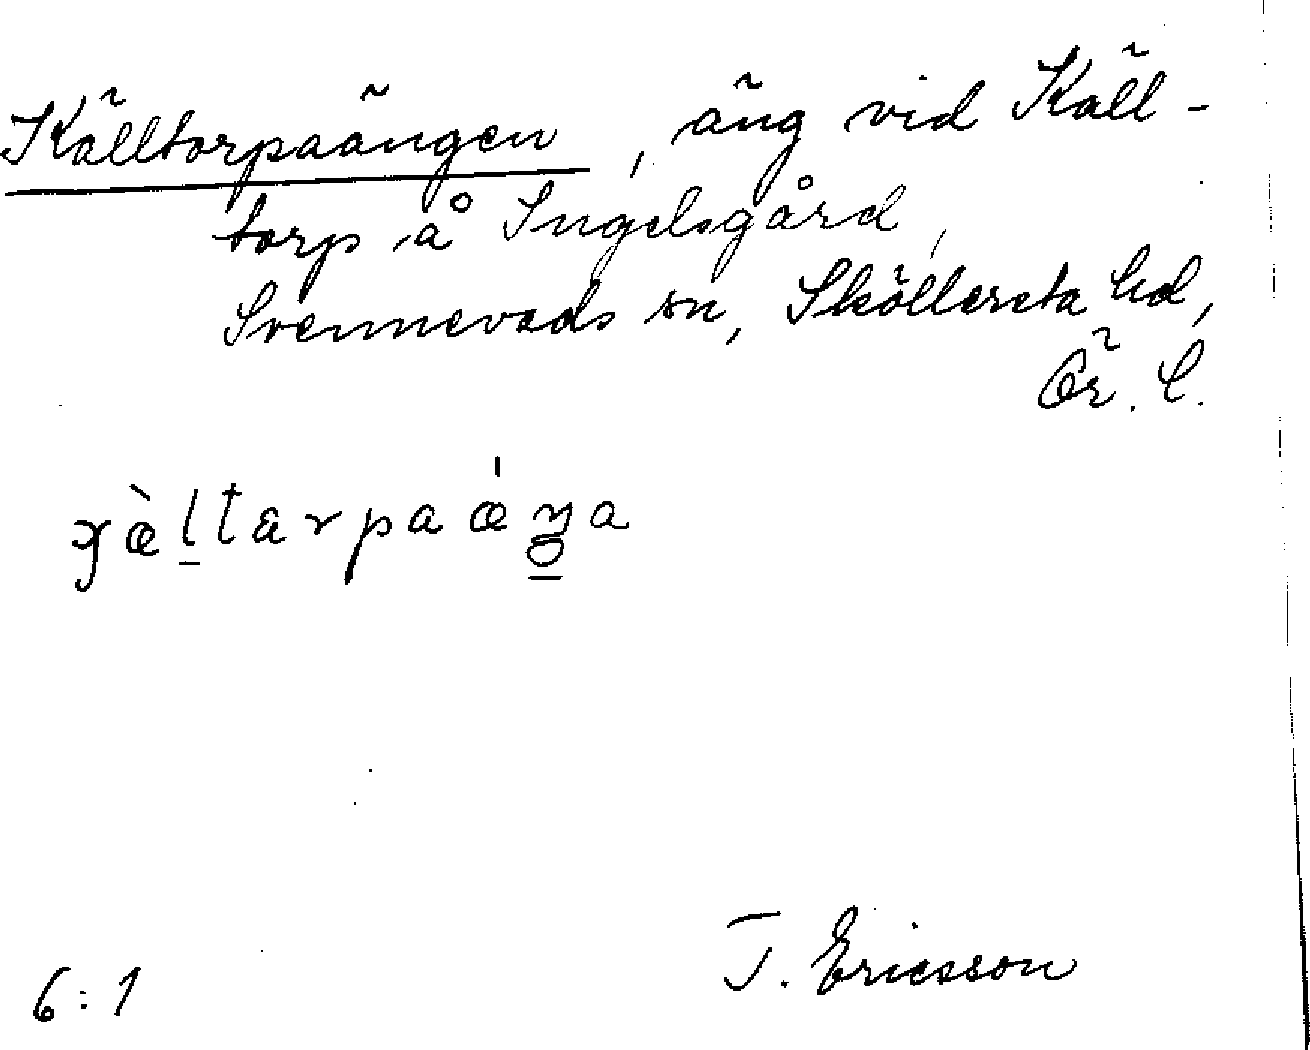 Källtorpaängen, äng vid Käll-
torp å Ingelsgård,
Svennevads sn, Sköllersta hd,
Ör. l.
6:1
T. Ericsson